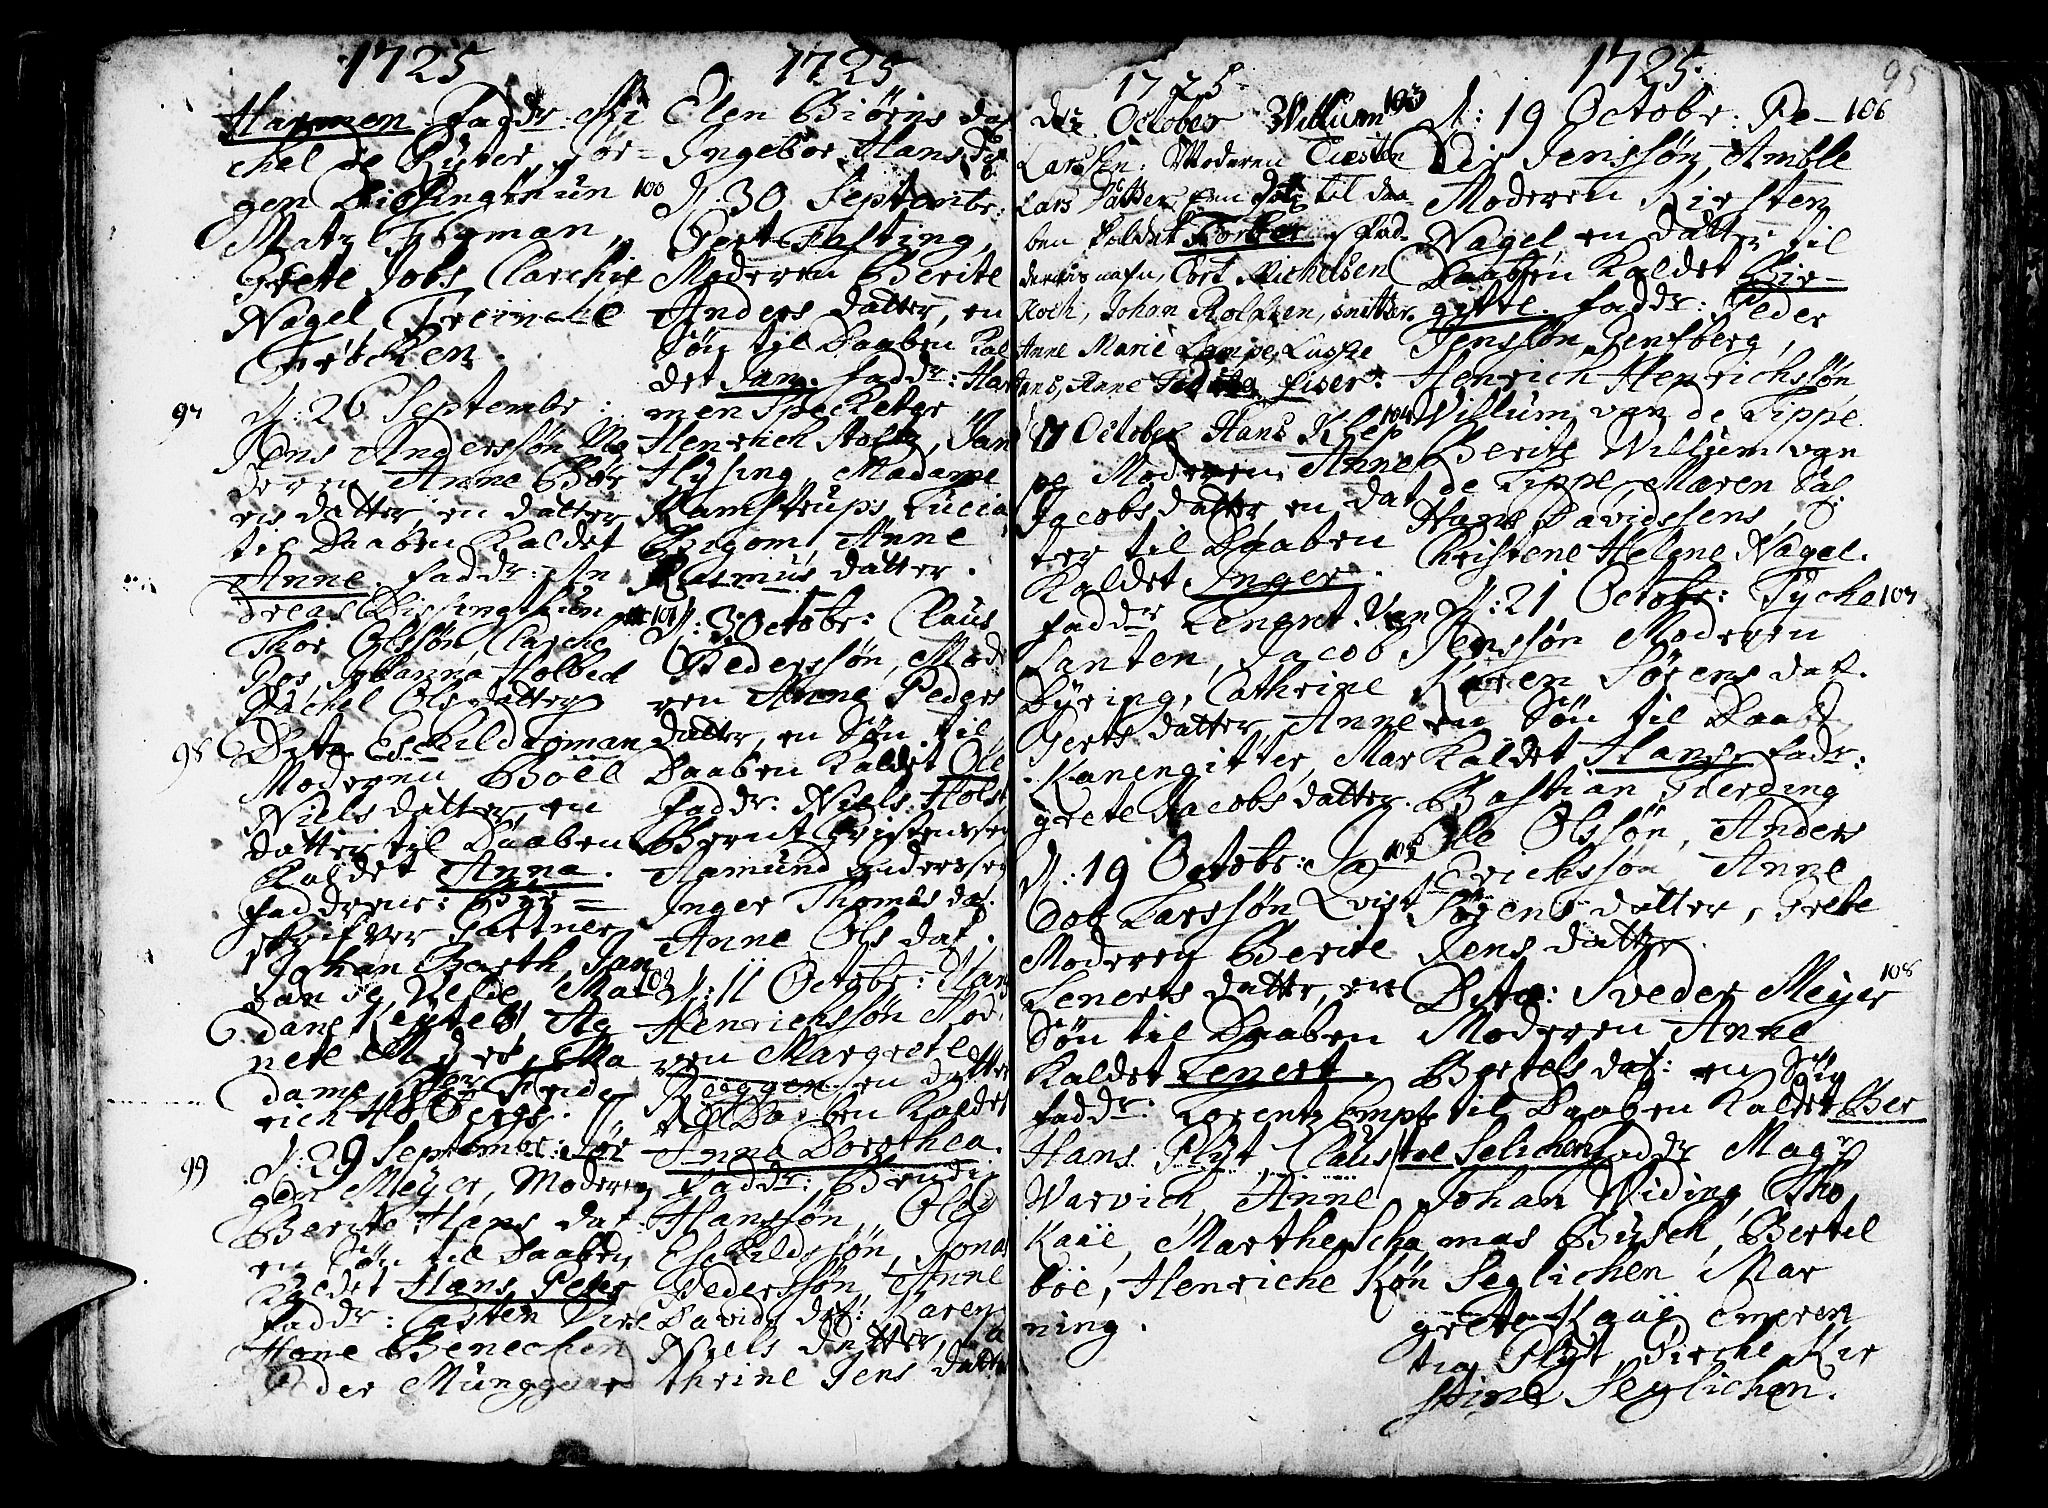 1725
Harmen. Fadr: Mi
chel de Ryter, Jør-
gen Dichingthun
Matz Figman,
Grete Jobs Clarchie
Nagel, Treinche
Frøcken.
97
d: 26 Septembr:
Jens Anderssøn Mo
deren Anne Bør
ris datter, en datter
til Daaben Kaldet
Anne. Faddr: An
dreas Dissingthun
Thor Olssøn, Clarche
Bos Johanna Holbed
Rachel Olsdatter
98 Dito Eschild Toman
Moderen Boel
Niels datter, en
datter til Daaben
Kaldet Anna.
Faddrene: Bye=
skrifver Gartner
Johan Barth, Jan
dan de Velde, Ma-
dame Keptels, Ag
nete Meyer, Ma
dame Frider
rich Holbergs.
99
d: 29 Septembr: Jør
gen Meyer, Moderen
Berite Hans dat.
en Søn til Daaben
Kaldet Hans Peter
Faddr: Casten Dirl
Hane Benechen
Peder Munggaard
1725
Elen Biørns dat
Ingebor Hans dat
100 d: 30 Septembr:
Gert Fasting,
Moderen Berite
Anders datter, en
Søn til Daaben Kal
det Jan. Faddr: Har
men Specketer
Henrich Stoltz, Jan
Hysing, Madame
Ramstrups, Lucia
Bigom, Anne
Rasmus datter.
101 d: 3 Octobr: Claus
Pederssøn, Mod
ren Anne Peders
datter, en Søn til
Daaben Kaldet Ole
Faddr: Niels Holst
Bernt Christenssen
Aamund Anderssen
Inger Thomas dat.
Anne Ols dat.
102 d: 11 Octobr: Hans
Henrichssøn Mod
ren Margrete
Roggen en datter
til Daaben Kaldet
Anna Dorothea.
Faddr: Bendix
Hanssøn, Ole
Eschildssøn, Jonas
Pederssøn, Anne
Davids dat: Karen
Niels datter, Ca
thrine Jens datter
1725
dito October Willum 103
Larssen. Moderen Kiersten
Lars Datter, en til daa
ben koldet Torber. Fad
derens nafn, Cort Michelsen
Koch, Johan Roleksen, snitker.
Anne Marie Lampe, Lucke
Jens, Anne fiser.
d: 17 October Hans Klep 104
pe Moderen Anne
Jacobs datter en dat
ter til Daaben
Kaldet Inger.
Faddr Lengret van
Santen, Jacob
Dyring, Cathrine
Gerts datter, Anne
Kanengitter, Mar
grete Jacobs datter.
d: 19 Octobr: Ja 105
cob Larssøn Qvist
Moderen Berite
Lenerts datter, en
Søn til Daaben
Kaldet Lenert.
Faddr: Lorentz Compf
Hans Plyt, Claus
Warvich, Anne
Kaie, Marthe Scha
bøe, Henriche Køn
ning.
1725.
95
d: 19 Octobr: Pe- 106
der Jenssøn Amble
Moderen Kiersten
Nagel en datter til
Daaben Kaldet Bir-
gitte. Faddr: Peder
Jenssøn Jenfberg,
Henrich Henrichssøn
Willum van de Lippe
Berite Willum van
de Lippe, Maren Sal:
Hans Davidssens,
Christene Helene Nagel.
d: 21 Octobr: Tyche 107
Jenssøn Moderen
Karen Sørens dat.
en Søn til Daab
Kaldet Hans. Fadr:
Bastian Fierding
Ole Olssøn, Anders
Erichssøn, Anne
Sørens datter, Grete
Jens datter.
Dito: Sveder Meyer 108
Moderen Anne
Bertels dat: en Søn
til Daaben Kaldet Ber
tel Selichen Faddr Magr
Johan Widing, Tho
mas Busch, Bertel
Seglichen Mar
grete Kaaij Emeren
tia Plyt Dirche Kir
stine Seglichen.